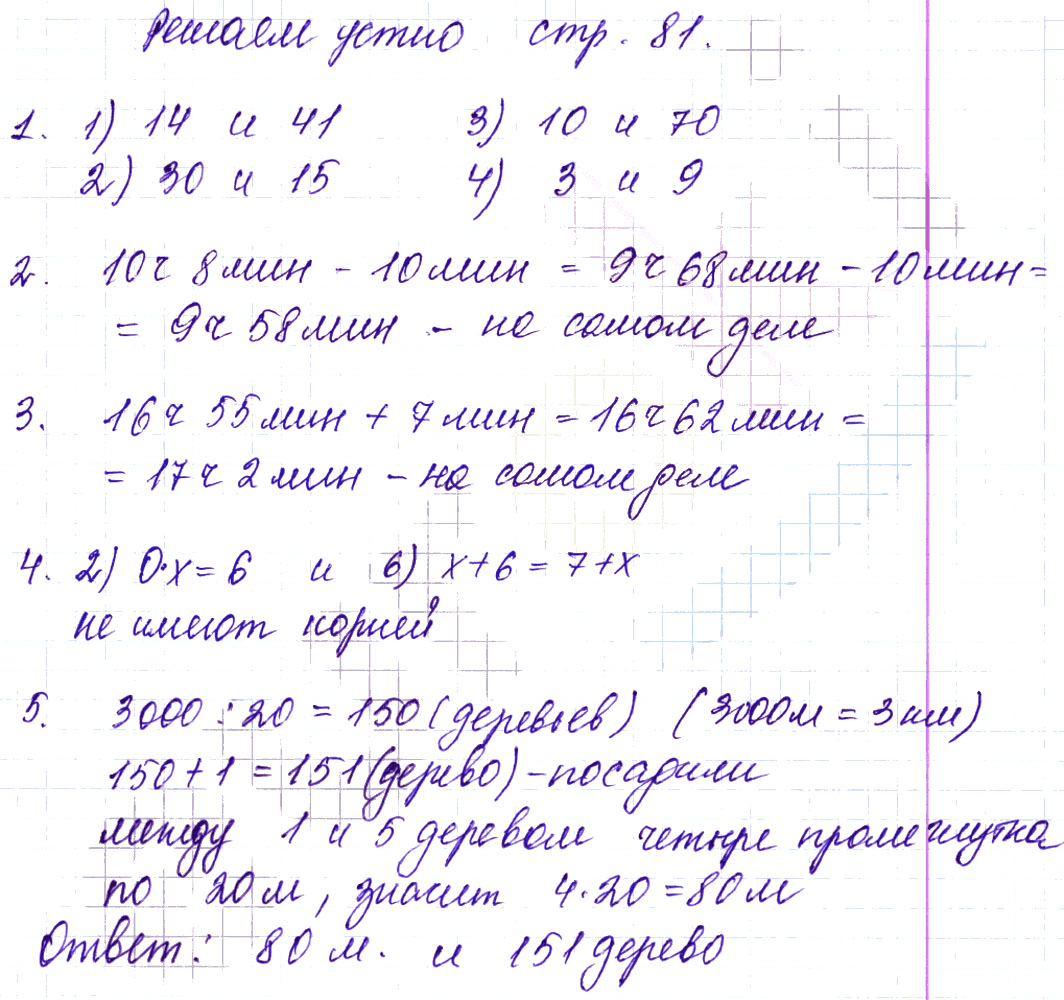 Решаем устно стр. 81.
1. 1) 14 и 41 3) 10 и 70
2) 30 и 15 4) 3 и 9
2. 10ч 8мин - 10мин = 9ч 68мин - 10мин =
= 9ч 58мин - на самом деле
3. 16ч 55мин + 7мин = 16ч 62мин =
= 17ч 2мин - на самом деле
4. 2) 0·x = 6 и 6) x+6 = 7+x
не имеют корней
5. 3000 : 20 = 150 (деревьев) (3000м = 3км)
150 + 1 = 151 (дерево) - посадили
между 1 и 5 деревом четыре промежутка
по 20м, значит 4·20 = 80м
Ответ: 80м. и 151 дерево